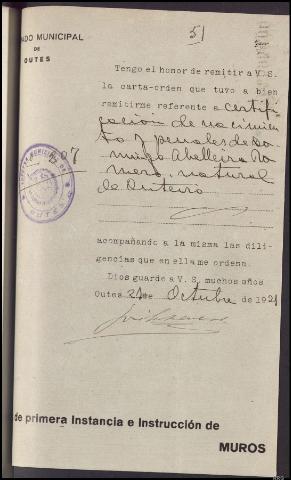 51
DO MUNICIPAL
DE
OUTES
Tengo el honor de remitir a V. S.
la carta-orden que tuvo a bien
remitirme referente a certifi-
cación de nacimien-
to y penales de Do-
mingo Abelleira Ro-
mero, natural
de Outeiro
07
OUTES
acompañando a la misma las dili-
gencias que en ella me ordena.
Dios guarde a V. S. muchos años
Outes 21 de Octubre de 1921
José
de primera Instancia e Instrucción de
MUROS